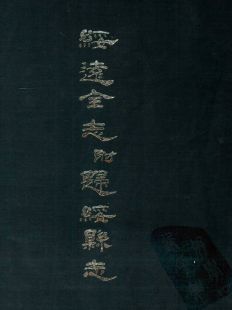 綏遠全志附歸綏縣志